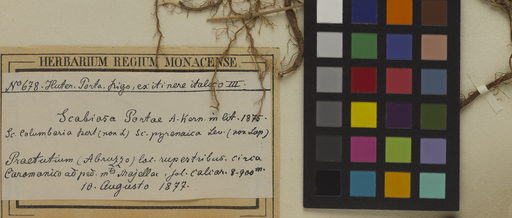 HERBARIUM REGIUM MONACENSE.
No 678. Huter. Porta. Rigo, ex itinere italico III.
Scabiosa Portae A. Kern. in lit. 1875.
Sc. Columbaria part (non L) Sc. pyrenaica Lev. (non Lap)
Praetutium (Abruzzo) loc. rupestribus. circa
Caramanico ad ped. mtis Majella. sol. calcar. 8-900m.
10. Augusto 1877.